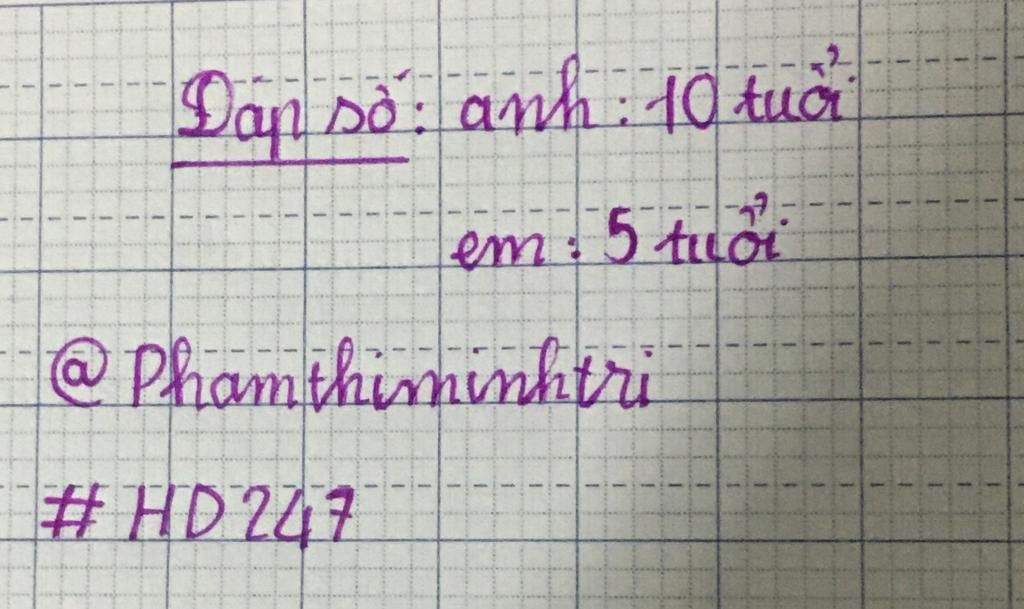 Đáp số: anh: 10 tuổi
em: 5 tuổi
@Phamthiminhtri
#HD247